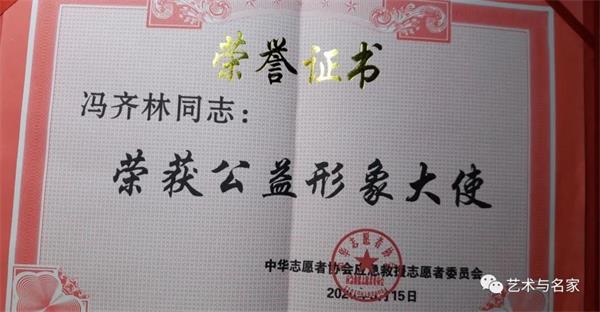 荣誉证书
冯齐林同志：
荣获公益形象大使
中华志愿者协会应急救援志愿者委员会
月15日
艺术与名家